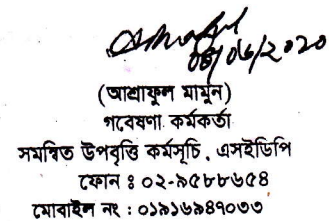 08/06/2020
(আশ্রাফুল মামুন)
গবেষণা কর্মকর্তা
সমন্বিত উপবৃত্তি কর্মসূচি, এসইডিপি
ফোন ঃ ০২-৯৫৮৮৬৫৪
মোবাইল নং ঃ ০১৯১৬৯৪৭০৩৩